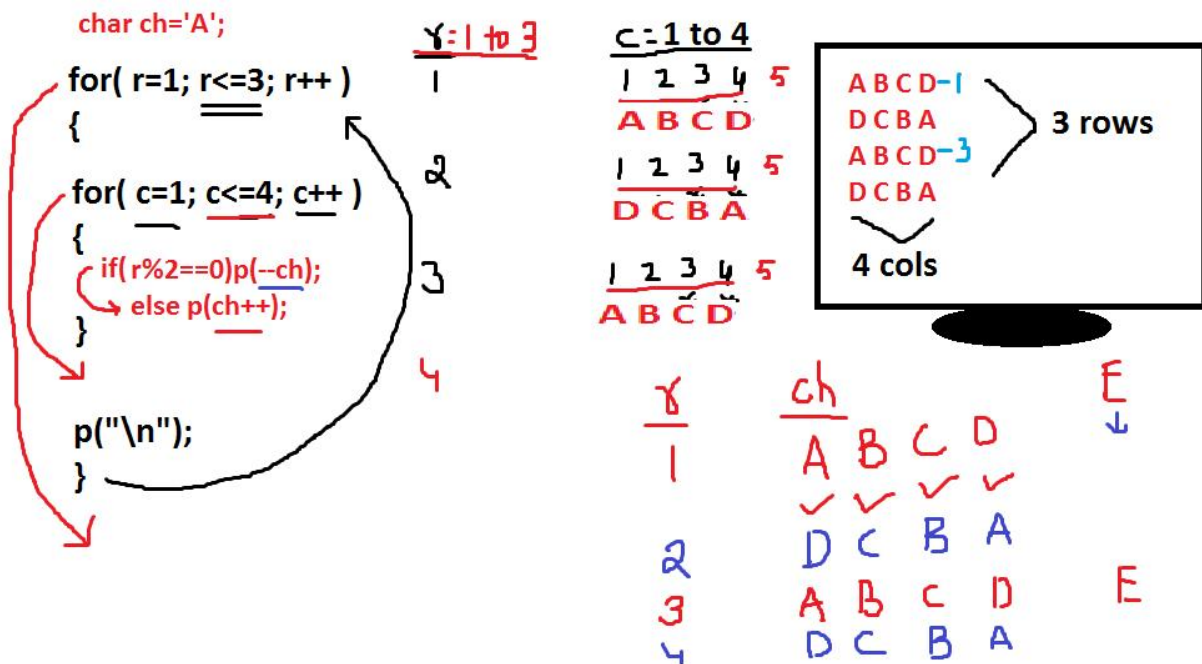 char ch='A';
for( r=1; r<=3; r++ )
{
for( c=1; c<=4; c++ )
{
if( r%2==0)p(--ch);
else p(ch++);
}
p("\n");
}
r=1 to 3
1
2
3
4
c=1 to 4
1 2 3 4 5
A B C D
1 2 3 4
D C B A
1 2 3 4 5
A B C D
A B C D-1
D C B A
A B C D-3
D C B A
3 rows
4 cols
r ch E
1 A B C D
2 D C B A
3 A B C D E
4 D C B A